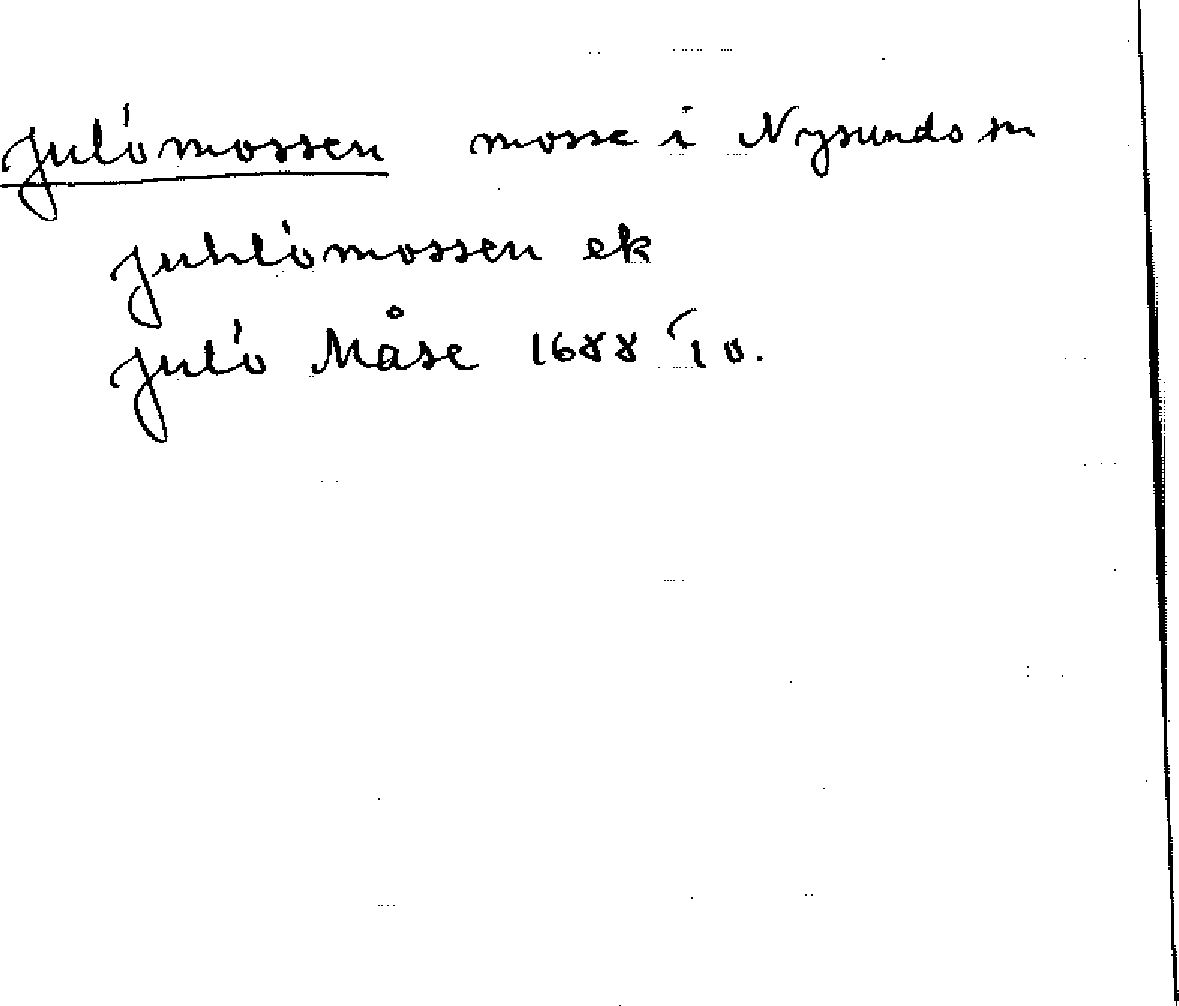 Julsmossen mosse i Nysunds sn
Juhlsmossen ek
Juls Måse 1688 10.